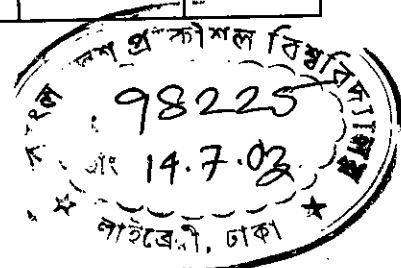 প্রকৌশল বিশ্ববিদ্যালয়
98225
তাং 14.7.03
লাইব্রেরী, ঢাকা